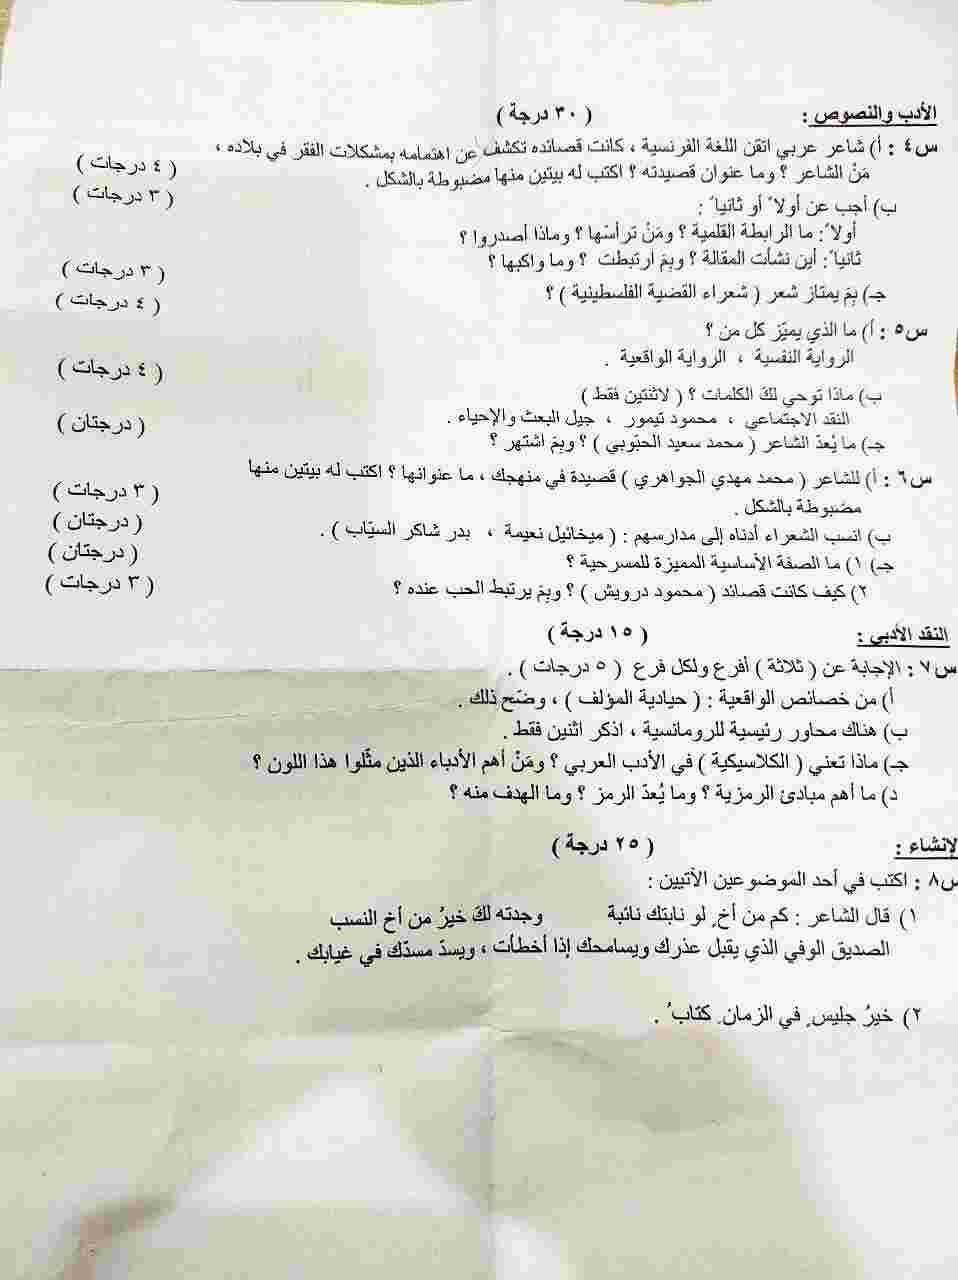 الأدب والنصوص : ( ٣٠ درجة )
س٤ : أ) شاعر عربي اتقن اللغة الفرنسية ، كانت قصائده تكشف عن اهتمامه بمشكلات الفقر في بلاده ،
مَنْ الشاعر ؟ وما عنوان قصيدته ؟ اكتب له بيتين منها مضبوطة بالشكل . ( ٤ درجات )
ب) أجب عن أولاً أو ثانياً : ( ٣ درجات )
أولاً: ما الرابطة القلمية ؟ ومَنْ ترأسّها ؟ وماذا أصدروا ؟
ثانياً: أين نشأت المقالة ؟ وبِمَ ارتبطت ؟ وما واكبها ؟
جـ) بِمَ يمتاز شعر ( شعراء القضية الفلسطينية ) ؟ ( ٣ درجات )
س٥ : أ) ما الذي يميّز كل من ؟ ( ٤ درجات )
الرواية النفسية ، الرواية الواقعية .
ب) ماذا توحي لك الكلمات ؟ ( لاثنتين فقط ) ( ٤ درجات )
النقد الاجتماعي ، محمود تيمور ، جيل البعث والإحياء .
جـ) ما يُعدّ الشاعر ( محمد سعيد الحبّوبي ) ؟ وبِمَ اشتهر ؟ ( درجتان )
س٦ : أ) للشاعر ( محمد مهدي الجواهري ) قصيدة في منهجك ، ما عنوانها ؟ اكتب له بيتين منها
مضبوطة بالشكل . ( ٣ درجات )
ب) انسب الشعراء أدناه إلى مدارسهم : ( ميخائيل نعيمة ، بدر شاكر السيّاب ) . ( درجتان )
جـ) ١) ما الصفة الأساسية المميزة للمسرحية ؟ ( درجتان )
٢) كيف كانت قصائد ( محمود درويش ) ؟ وبِمَ يرتبط الحب عنده ؟ ( ٣ درجات )
النقد الأدبي : ( ١٥ درجة )
س٧ : الإجابة عن ( ثلاثة ) أفرع ولكل فرع ( ٥ درجات ) .
أ) من خصائص الواقعية : ( حيادية المؤلف ) ، وضّح ذلك .
ب) هناك محاور رئيسية للرومانسية ، اذكر اثنين فقط .
جـ) ماذا تعني ( الكلاسيكية ) في الأدب العربي ؟ ومَنْ أهم الأدباء الذين مثّلوا هذا اللون ؟
د) ما أهم مبادئ الرمزية ؟ وما يُعدّ الرمز ؟ وما الهدف منه ؟
لإنشاء : ( ٢٥ درجة )
س٨ : اكتب في أحد الموضوعين الآتيين :
١) قال الشاعر : كم من أخٍ لو نابتك نائبة وجدته لكَ خيرُ من أخ النسب
الصديق الوفي الذي يقبل عذرك ويسامحك إذا أخطأت ، ويسدّ مسدّك في غيابك .
٢) خيرُ جليسٍ في الزمانِ كتابُ .